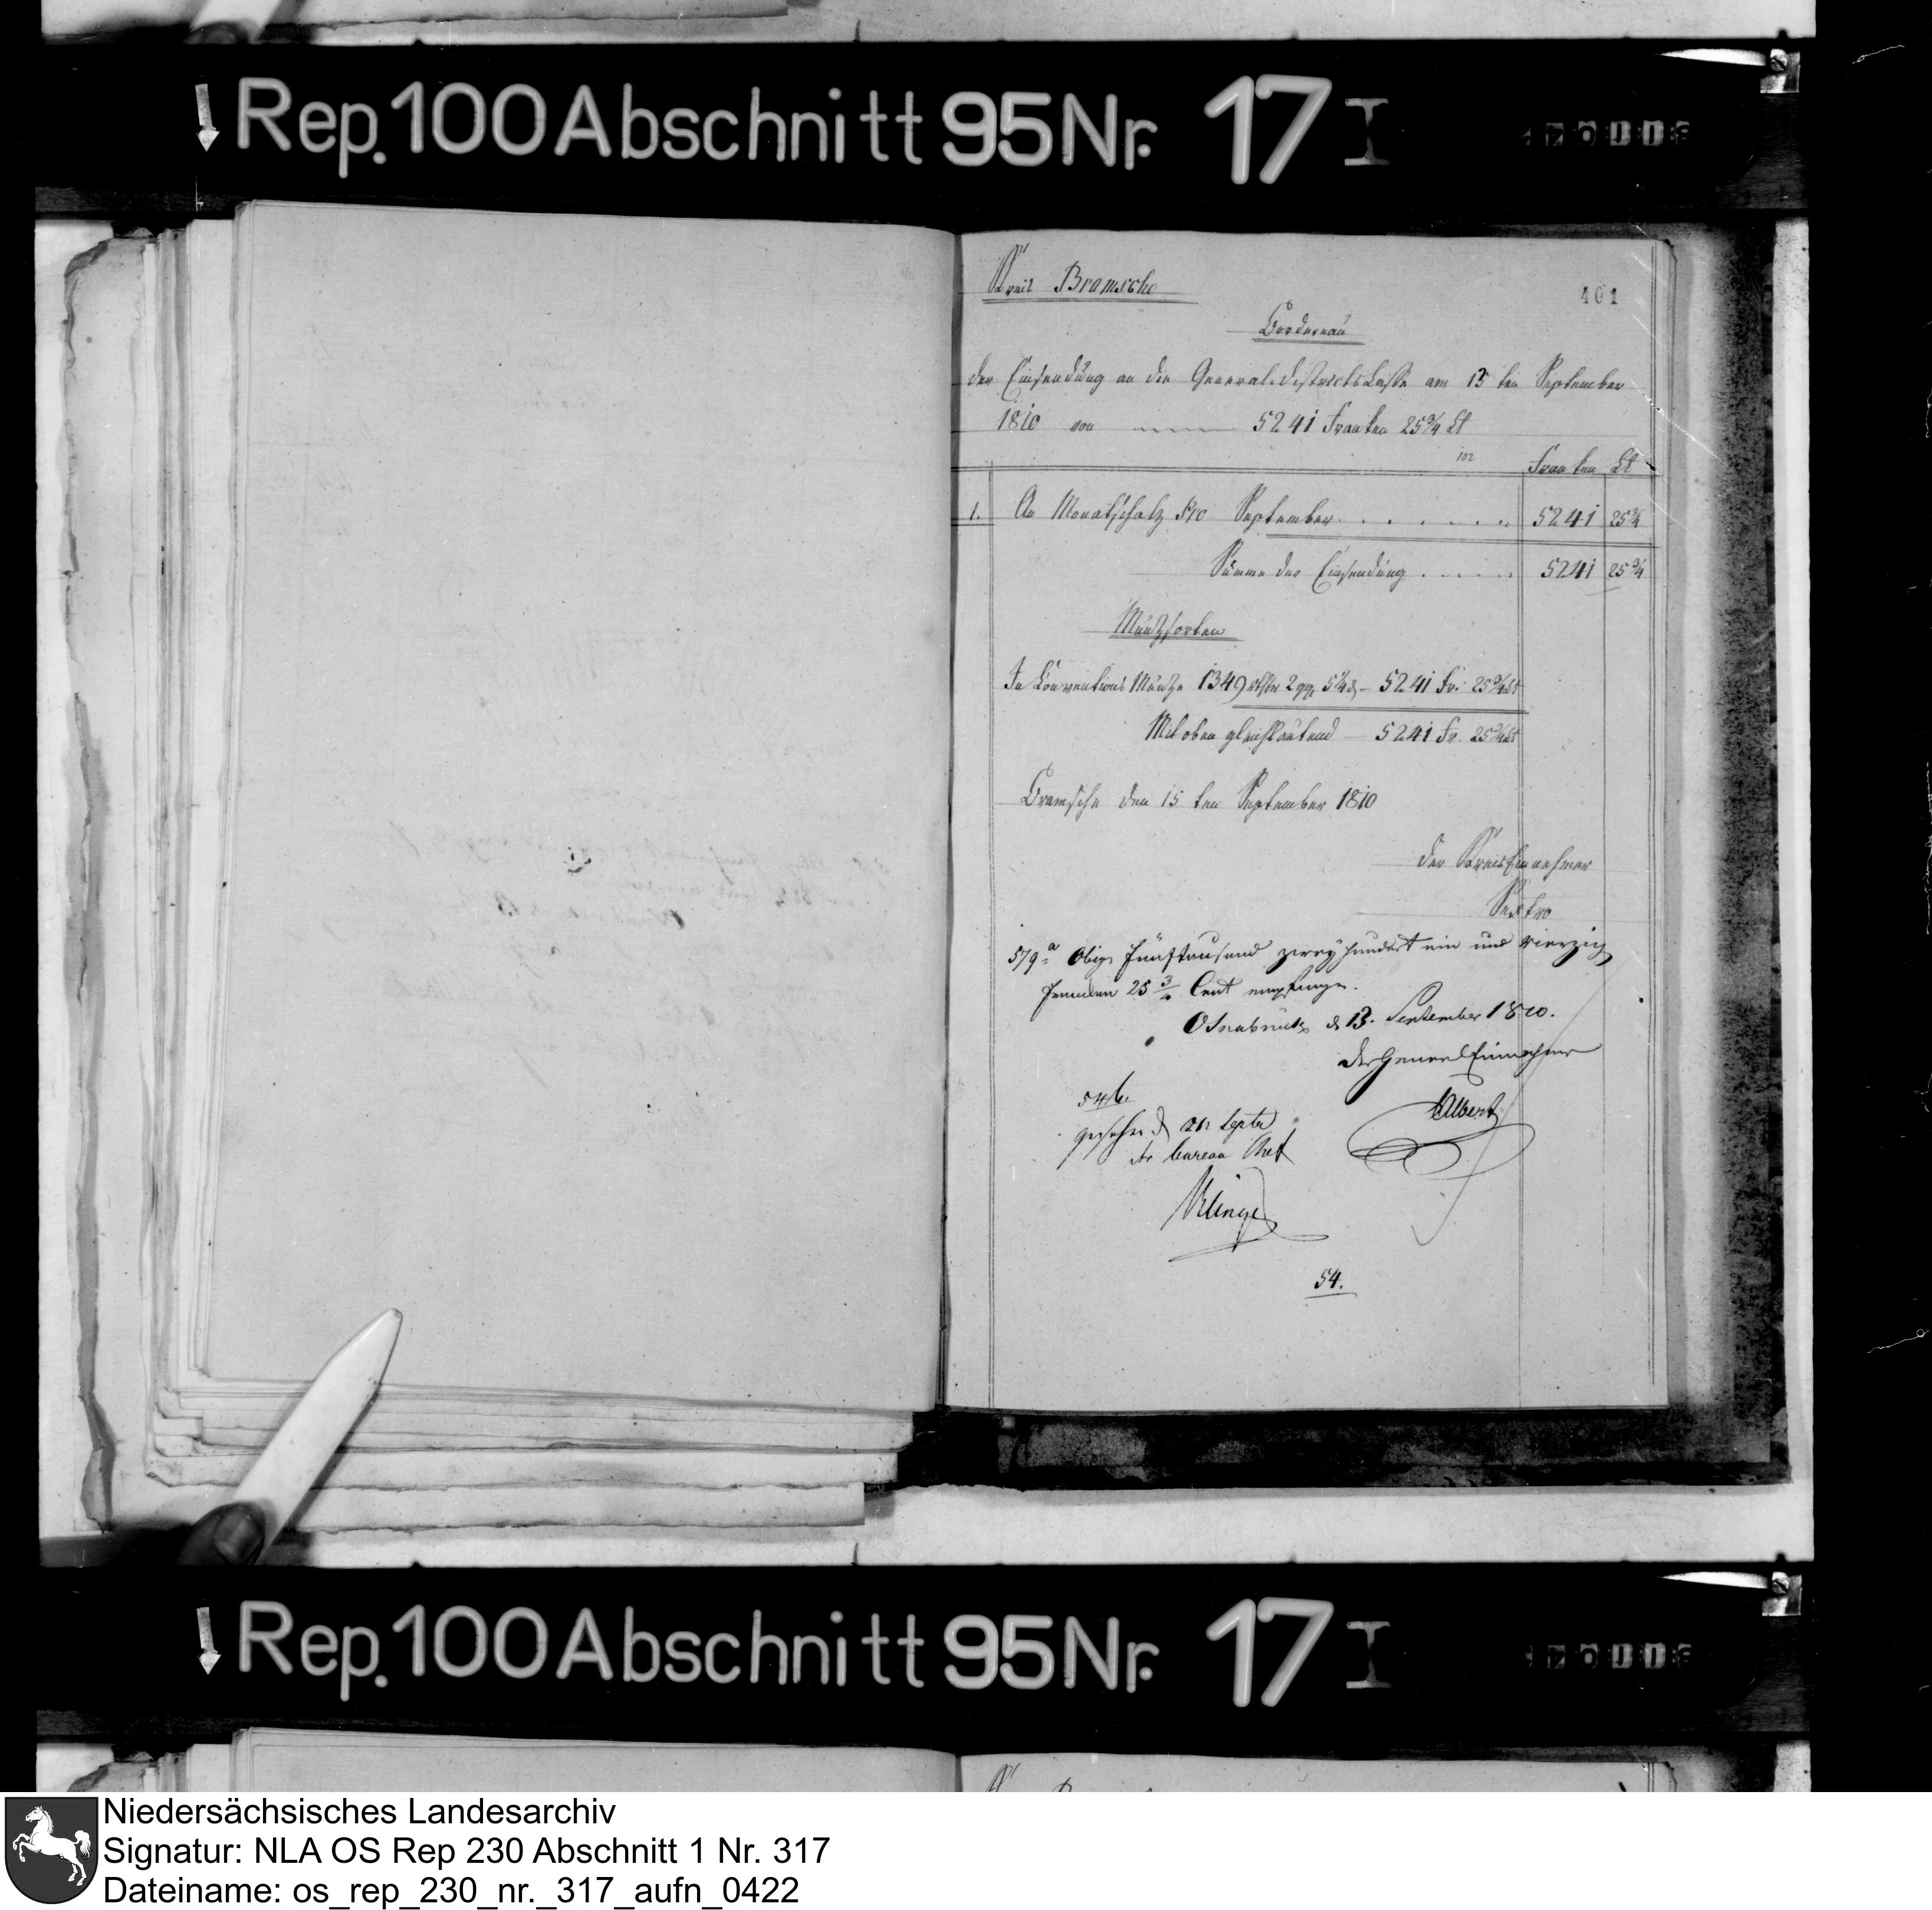 Rep. 100 Abschnitt 95 Nr. 17 I
Kreis Bramsche
401
Bordereau
der Einsendung an die Generaldistricts Casse am 15 ten September
1810 von 5241 Franken 25 3/4 Ct
102
Franken Ct
1. An Monatschatz pro September . . . . . . . 5241 25 3/4
Summe der Einsendung . . . . . 5241 25 3/4
Müntzsorten
In Conventions Müntze 1349 rthlr 2 ggr 5 1/4 d – 5241 Fr. 25 3/4 Ct
Mit oben gleichlautend – 5241 Fr. 25 3/4 Ct
Bramsche den 15 ten September 1810
Der Kreis Einnehmer
Sextro
579 a Obige fünftausend zweyhundert ein und vierzig
Franken 25 3/4 Cent empfangen.
Osnabrück d 13. September 1810.
Der General Einnehmer
Albert
546.
gesehen d 21 Septr
der bureau Chef
Klinge
54.
Rep. 100 Abschnitt 95 Nr. 17 I
Niedersächsisches Landesarchiv
Signatur: NLA OS Rep 230 Abschnitt 1 Nr. 317
Dateiname: os_rep_230_nr._317_aufn_0422